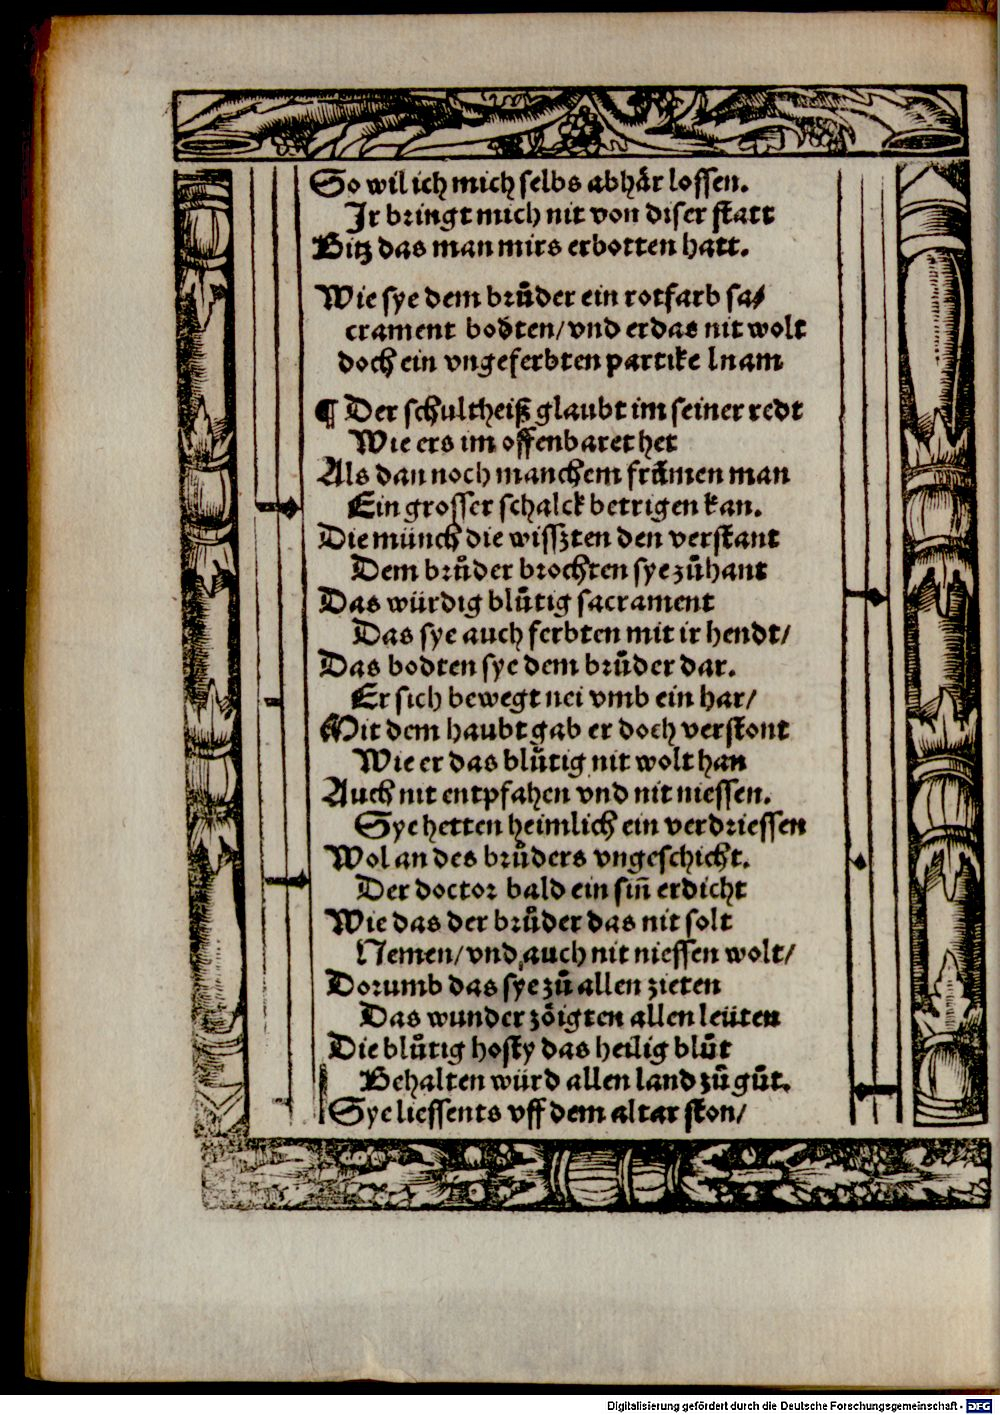 So wil ich mich selbs abhår lossen.
Jr bringt mich nit von diser statt
Bitz das man mirs erbotten hatt.
Wie sye dem brůder ein rotfarb sa/
crament bodten/ vnd er das nit wolt
doch ein vngeferbten partike lnam
¶ Der schultheiß glaubt im seiner redt
Wie ers im offenbaret het
Als dan noch manchem frũmen man
Ein grosser schalck betrigen kan.
Die münch die wisszten den verstant
Dem brůder brochten sye zůhant
Das würdig blůtig sacrament
Das sye auch ferbten mit ir hendt/
Das bodten sye dem brůder dar.
Er sich bewegt nei vmb ein har/
Mit dem haubt gab er doch verstont
Wie er das blůtig nit wolt han
Auch nit entpfahen vnd nit niessen.
Sye hetten heimlich ein verdriessen
Wol an des brůders vngeschicht.
Der doctor bald ein sin̄ erdicht
Wie das der brůder das nit solt
Nemen/ vnd auch nit niessen wolt/
Dorumb das sye zů allen zieten
Das wunder zöigten allen leüten
Die blůtig hosty das heilig blůt
Behalten würd allen land zů gůt.
Sye liessents vff dem altar ston/
Digitalisierung gefördert durch die Deutsche Forschungsgemeinschaft - DFG